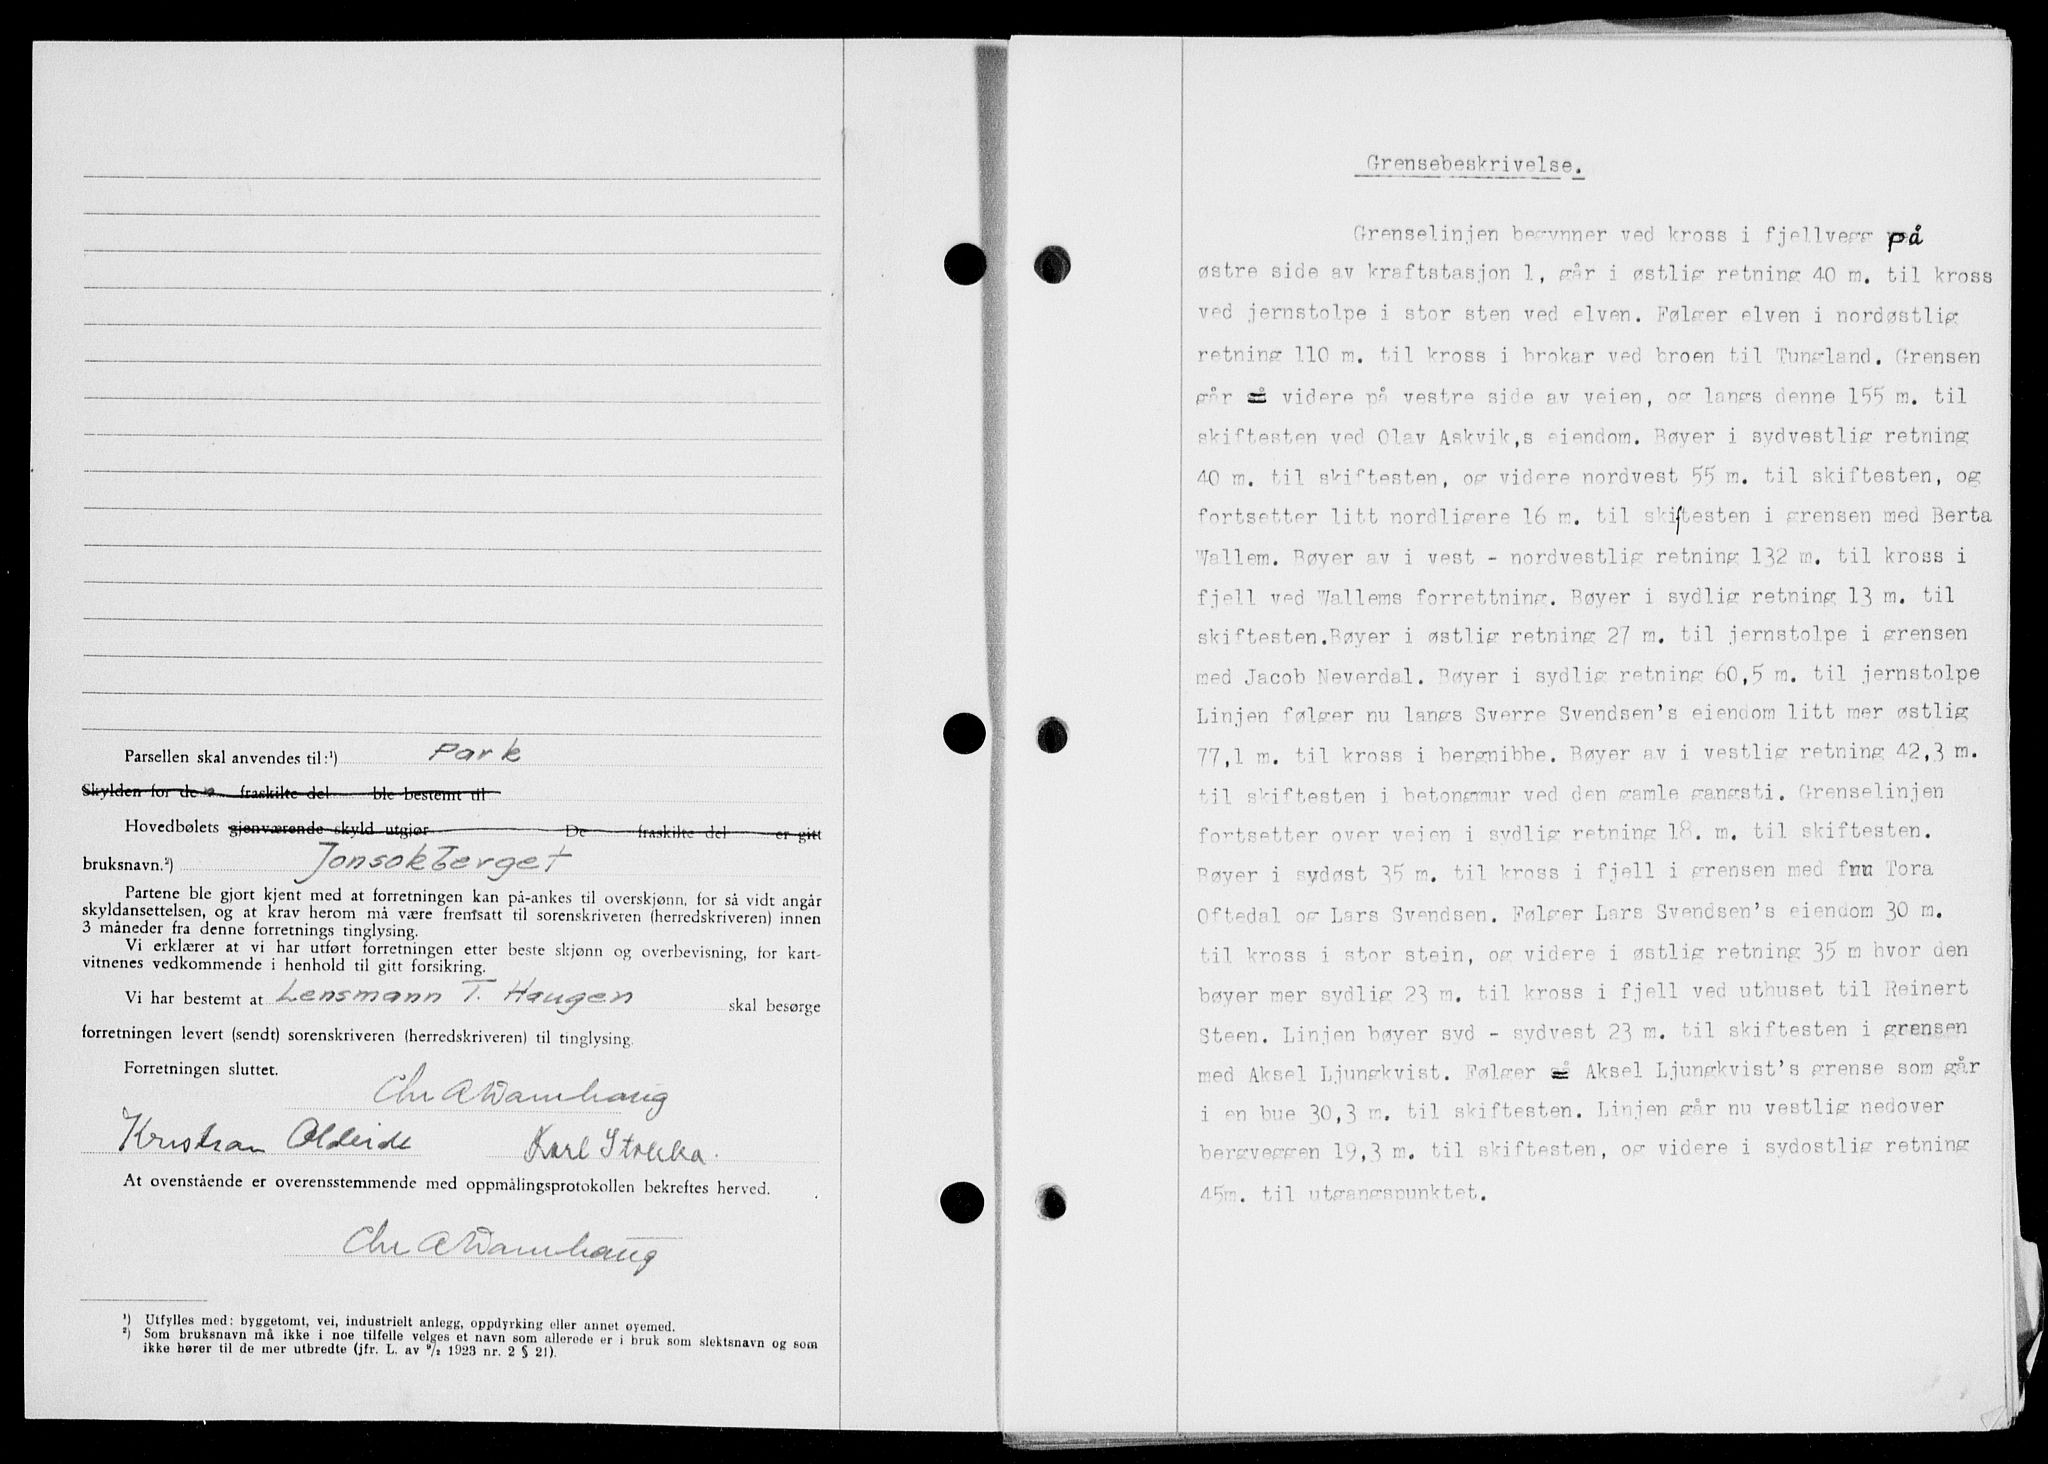 Parsellen skal anvendes til:¹) Park
Skylden for de fraskilte del ble bestemt til
Hovedbølets gjenværende skyld utgjør De fraskilte del er gitt
bruksnavn.²) Jonsokberget
Partene ble gjort kjent med at forretningen kan på-ankes til overskjønn, for så vidt angår
skyldansettelsen, og at krav herom må være fremsatt til sorenskriveren (herredskriveren) innen
3 måneder fra denne forretnings tinglysing.
Vi erklærer at vi har utført forretningen etter beste skjønn og overbevisning, for kart-
vitnenes vedkommende i henhold til gitt forsikring.
Vi har bestemt at Lensmann T. Haugen skal besørge
forretningen levert (sendt) sorenskriveren (herredskriveren) til tinglysing.
Forretningen sluttet.
Chr A Damhaug
Kristian Olden Karl Stokka.
At ovenstående er overensstemmende med oppmålingsprotokollen bekreftes herved.
Chr A Damhaug
¹) Utfylles med: byggetomt, vei, industrielt anlegg, oppdyrking eller annet øyemed.
²) Som bruksnavn må ikke i noe tilfelle velges et navn som allerede er i bruk som slektsnavn og som
ikke hører til de mer utbredte (jfr. L. av 9/2 1923 nr. 2 § 21).
Grensebeskrivelse.
Grenselinjen begynner ved kross i fjellvegg på
østre side av kraftstasjon 1, går i østlig retning 40 m. til kross
ved jernstolpe i stor sten ved elven. Følger elven i nordøstlig
retning 110 m. til kross i brokar ved broen til Tungland. Grensen
går å videre på vestre side av veien, og langs denne 155 m. til
skiftesten ved Olav Askvik,s eiendom. Bøyer i sydvestlig retning
40 m. til skiftesten, og videre nordvest 55 m. til skiftesten, og
fortsetter litt nordligere 16 m. til skiftesten i grensen med Berta
Wallem. Bøyer av i vest - nordvestlig retning 132 m. til kross i
fjell ved Wallems forrettning. Bøyer i sydlig retning 13 m. til
skiftesten.Bøyer i østlig retning 27 m. til jernstolpe i grensen
med Jacob Neverdal. Bøyer i sydlig retning 60,5 m. til jernstolpe
Linjen følger nu langs Sverre Svendsen's eiendom litt mer østlig
77,1 m. til kross i bergnibbe. Bøyer av i vestlig retning 42,3 m.
til skiftesten i betongmur ved den gamle gangsti. Grenselinjen
fortsetter over veien i sydlig retning 18. m. til skiftesten.
Bøyer i sydøst 35 m. til kross i fjell i grensen med fru Tora
Oftedal og Lars Svendsen. Følger Lars Svendsen's eiendom 30 m.
til kross i stor stein, og videre i østlig retning 35 m hvor den
bøyer mer sydlig 23 m. til kross i fjell ved uthuset til Reinert
Steen. Linjen bøyer syd - sydvest 23 m. til skiftesten i grensen
med Aksel Ljungkvist. Følger så Aksel Ljungkvist's grense som går
i en bue 30,3 m. til skiftesten. Linjen går nu vestlig nedover
bergveggen 19,3 m. til skiftesten, og videre i sydostlig retning
45m. til utgangspunktet.